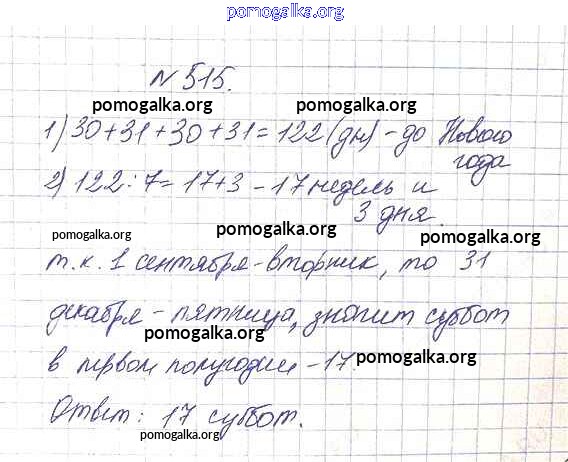 pomogalka.org
№ 515.
pomogalka.org
1) 30+31+30+31=122 (дн) - до Нового
года
pomogalka.org
2) 122:7=17+3 - 17 недель и
3 дня.
pomogalka.org
pomogalka.org
т.к. 1 сентября - вторник, то 31
декабря - пятница, значит суббот
pomogalka.org
в первом полугодии - 17.
pomogalka.org
Ответ: 17 суббот.
pomogalka.org